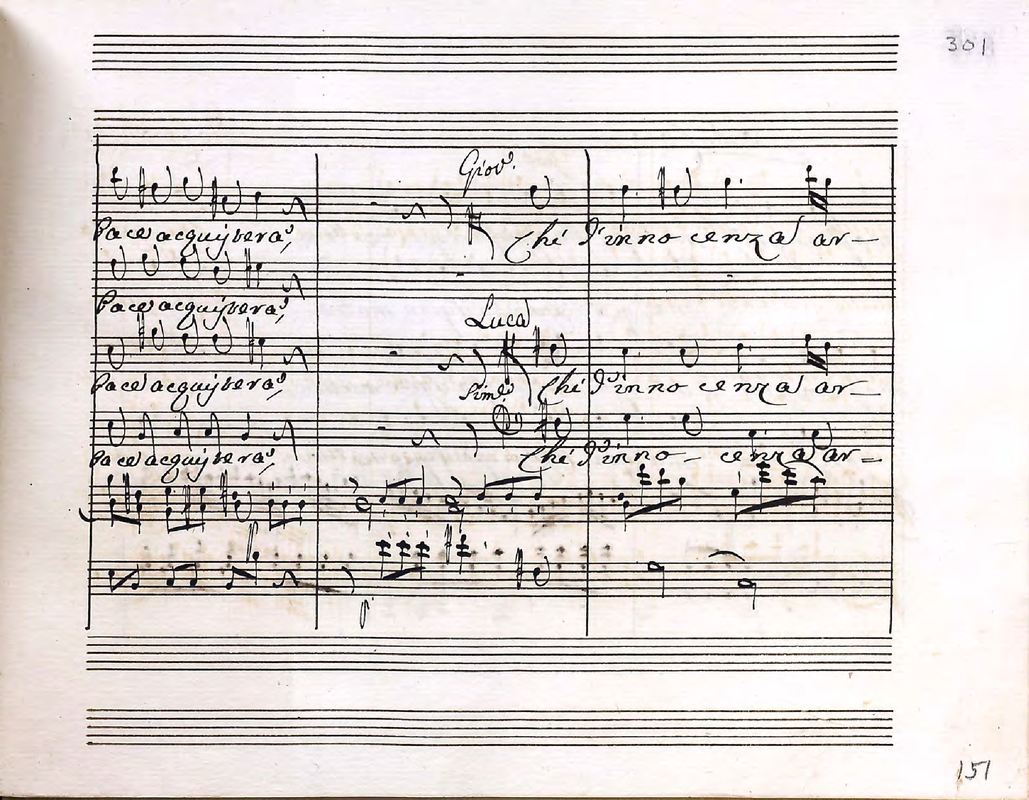 301
Giov.
Pace acquisterà,
Chi d'inno cenza ar-
Pace acquisterà,
Luca
Pace acquisterà,
Sime.
Chi d'inno cenza ar-
Pace acquisterà,
Chi d'inno- cenza ar-
151